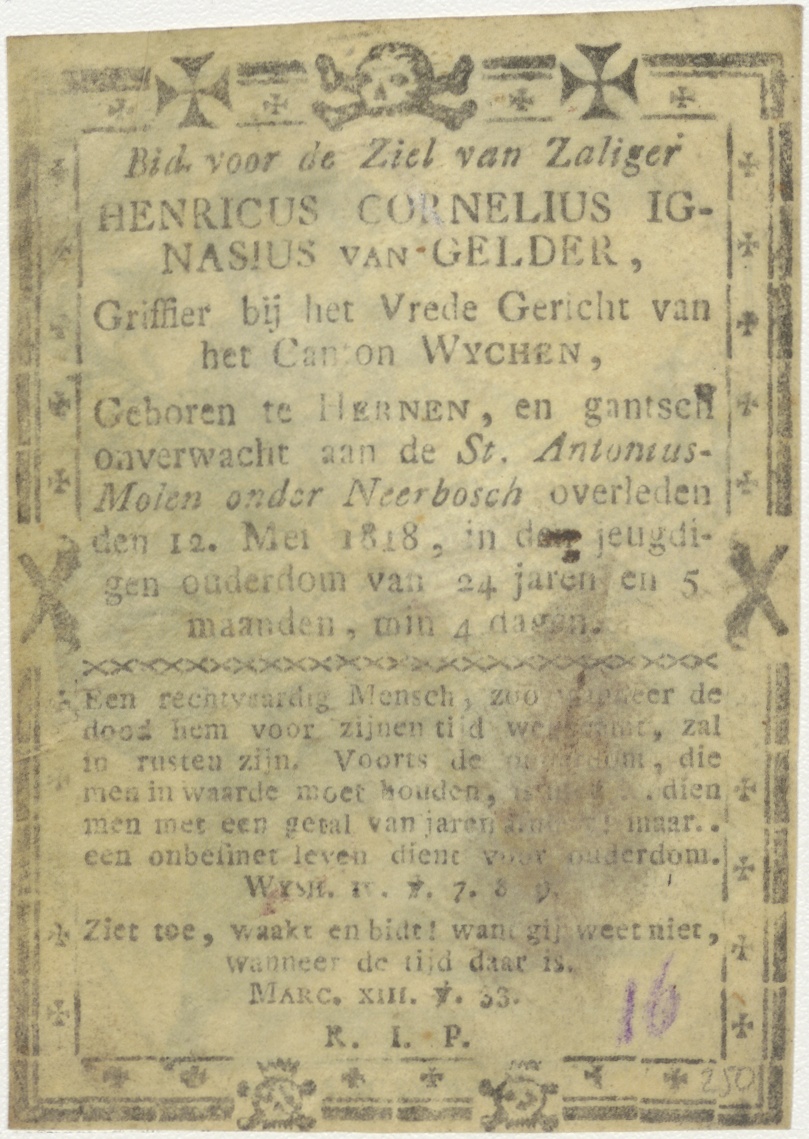 Bid voor de Ziel van Zaliger
HENRICUS CORNELIUS IG-
NASIUS VAN GELDER,
Griffier bij het Vrede Gericht van
het Canton WYCHEN,
Geboren te HERNEN, en gantsch
onverwacht aan de St. Antonius-
Molen onder Neerbosch overleden
den 12. Mei 1818, in den jeugdi-
gen ouderdom van 24 jaren en 5
maanden, min 4 dagen.
Een rechtvaardig Mensch, zoo wanneer de
dood hem voor zijnen tijd wegneemt, zal
in rusten zijn. Voorts de ouderdom, die
men in waarde moet houden, dien
men met een getal van jaren maar..
een onbesmet leven dient voor ouderdom.
WYSH. IV. ℣. 7. 8 9.
Ziet toe, waakt en bidt! want gij weet niet,
wanneer de tijd daar is.
MARC. XIII. ℣. 33.
R. I. P.
16
250